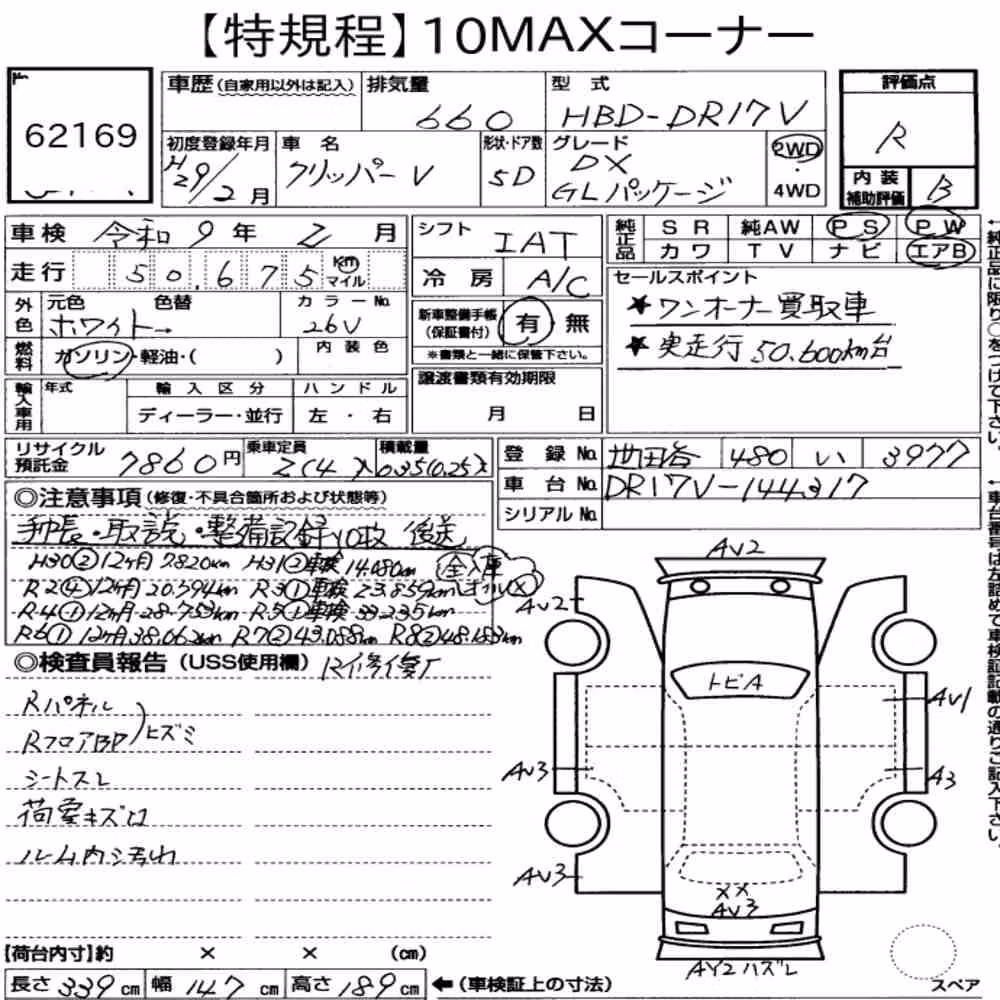 【特規程】10MAXコーナー
62169
車歴(自家用以外は記入)
排気量 660
型式 HBD-DR17V
評価点 R
初度登録年月 H29/2月
車名 クリッパーV
形状・ドア数 5D
グレード DX GLパッケージ
2WD・4WD
内装補助評価 B
車検 令和9年2月
シフト IAT
純正品 SR 純AW PS PW
カワ TV ナビ エアB
走行 50,675 Km マイル
冷房 A/C
セールスポイント
★ワンオーナー買取車
★実走行50.600km台
外色 元色 色替 カラーNo.
ホワイト→ 26V
新車整備手帳(保証書付) 有・無
※書類と一緒に保管下さい。
燃料 ガソリン・軽油・( ) 内装色
輸入車用 年式 輸入区分 ハンドル
ディーラー・並行 左・右
譲渡書類有効期限
月 日
リサイクル預託金 7860円
乗車定員 2(4)人
積載量 0.35(0.25)t
登録No. 世田谷 480 い 3977
車台No. DR17V-144317
シリアルNo.
◎注意事項(修復・不具合箇所および状態等)
手帳・取説・整備記録10枚 後送
H30②12ヶ月7820km H31②車検14.080km
全入庫
R2④12ヶ月20.594km R3①車検23.859km オイルX
R4①12ヶ月28.753km R5①車検33.235km
R6①12ヶ月38.062km R7②43.088km R8②48.153km
◎検査員報告(USS使用欄) R修復歴
Rパネル
RフロアBP
ヒズミ
シートスレ
荷室キズ凹
ルーム内シ汚れ
AV2
AV2
トビA
AV1
AV3
A3
AV3
XX
AV3
AY2ハズレ
【荷台内寸】約 × × (cm)
長さ339cm 幅147cm 高さ189cm ←(車検証上の寸法)
スペア
←純正品に限り○をつけて下さい。
←車台番号は左詰めで車検証記載の通りご記入下さい。